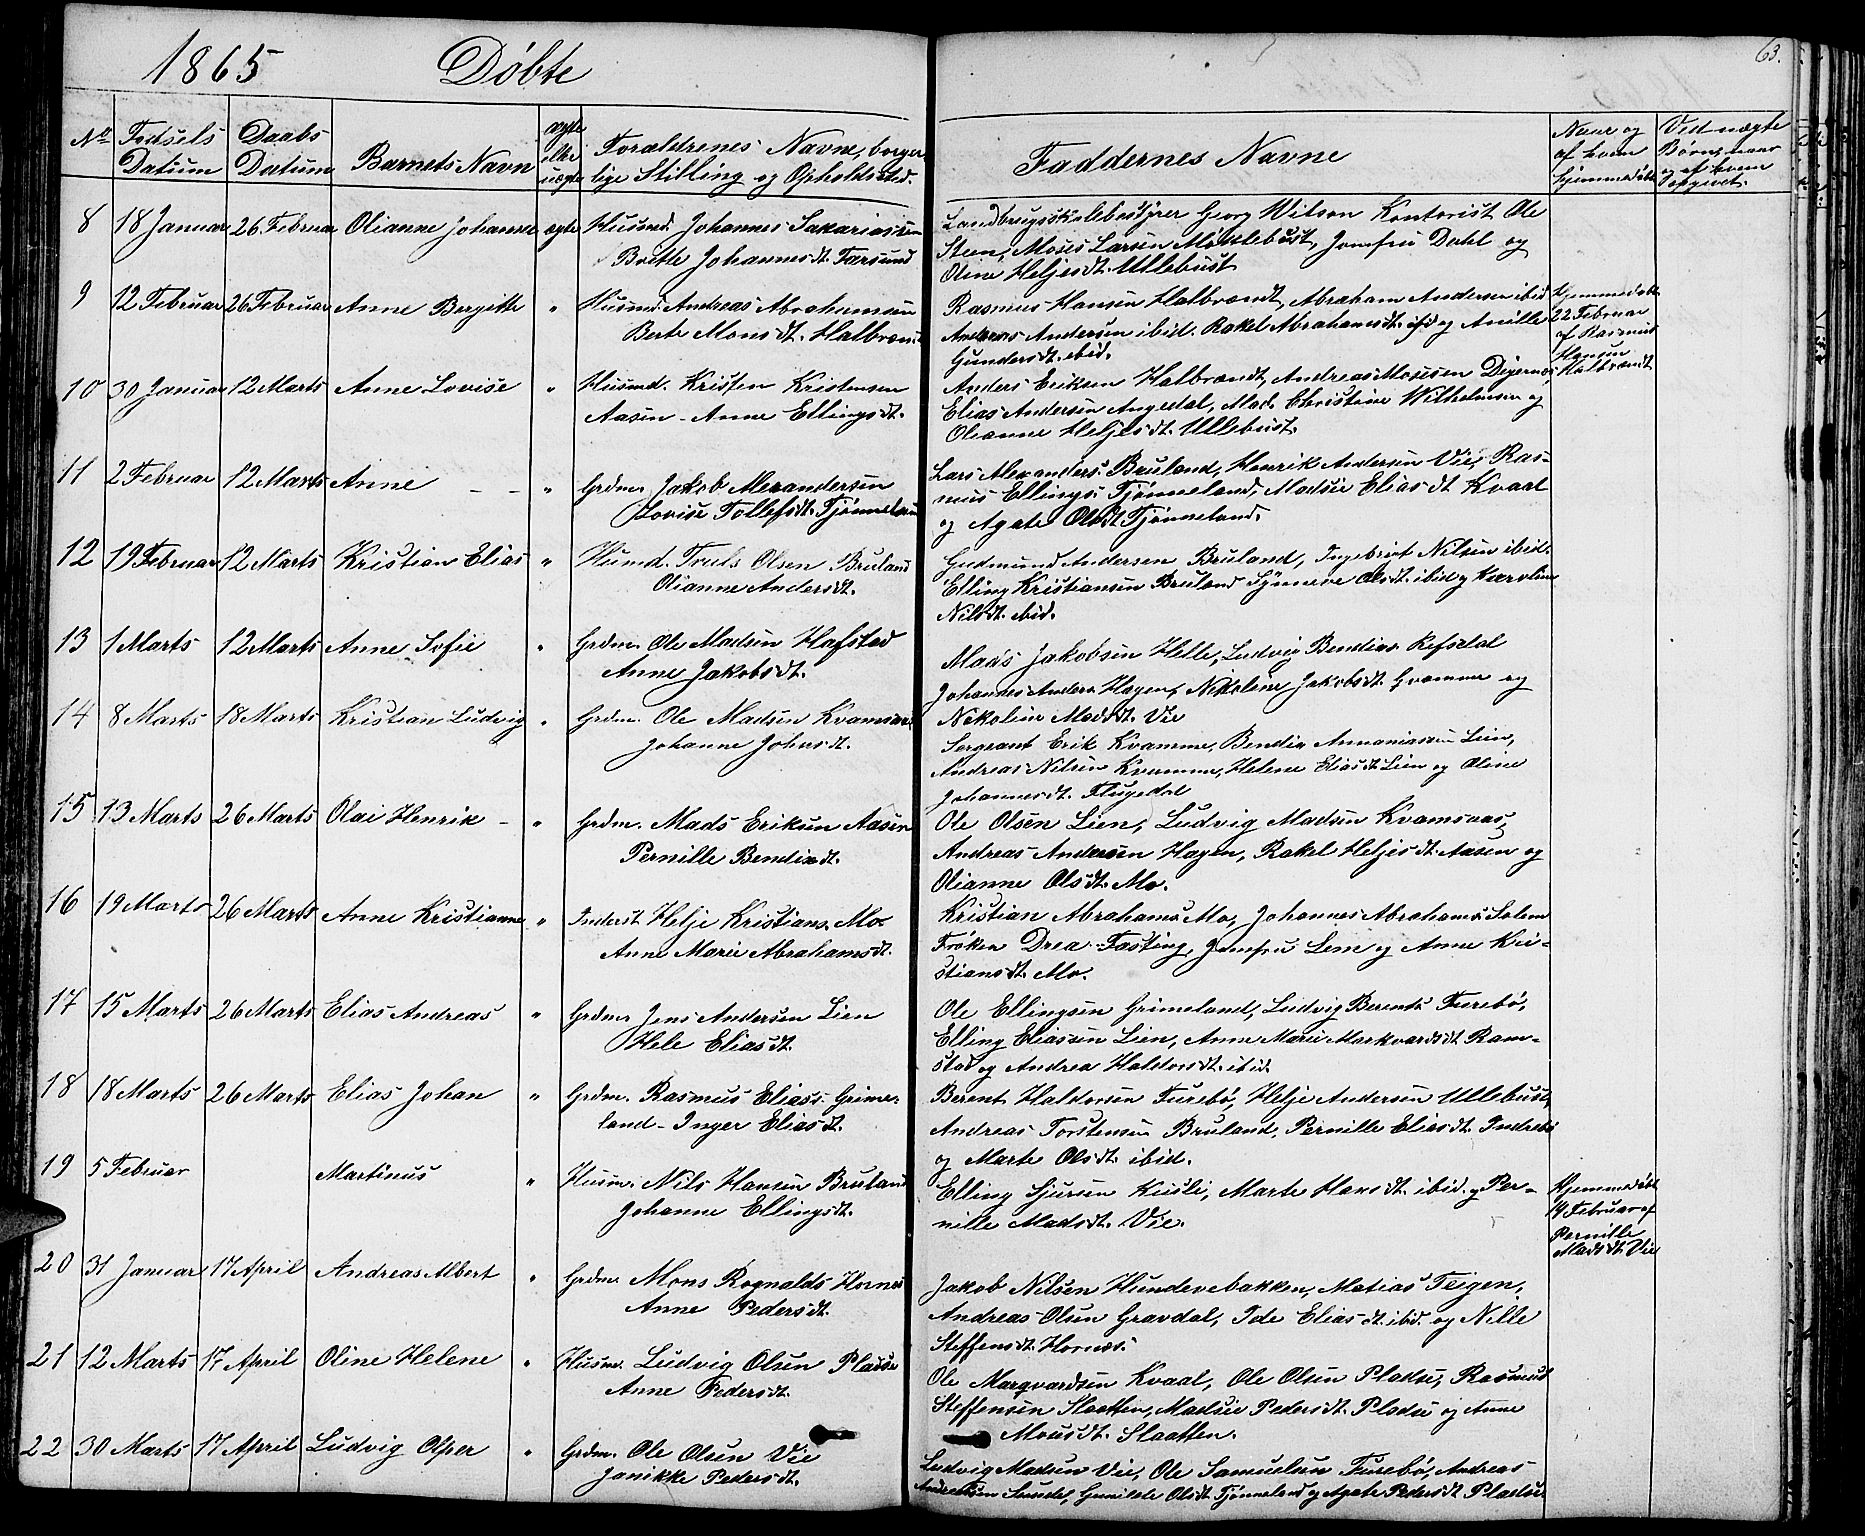 1865 Döbte
63.
No Fødsels Datum
Daabs Datum
Barnets Navn
ægte eller uægte
Forældrenes Navne, borger-
lige Stilling og Opholdssted.
Faddernes Navne
Naar og af hvem hjemmedøbt
Ved uægte Børn, naar og af hvem opgivet.
8 18 Januar 26 Februar Olianne Johanne ægte Husmd. Johannes Sakariassen
Johannesdt. Farsund
Landbrugsskolebestyrer Georg Wilson Kontorist Ole
Steen, Moses Larsen Mosslebust, Jomfru Dahl og
Oline Heljesdt. Ullebust
9 12 Februar 26 Februar Anne Bergitte " Husmd. Andreas Abrahamsen
Berte Monsdt. Halbrendt
Rasmus Hansen Halbrendt, Abraham Andersen ibid
Andreas Andersen ibid. Rakel Abrahamsdt. ibid og Anille
Gundersdt. ibid.
Hjemmedøbt
22 Februar
af Rasmus
Hansen
Halbrendt
10 30 Januar 12 Marts Anne Lovise " Husmd. Kristen Kristensen
Aasen - Anne Ellingsdt.
Anders Eriksen Halbrendt, Andreas Mosesen Degernes,
Elias Andersen Angedal, Mad. Christine Wilhelmsen og
Oleanne Heljesdt. Ullebust.
11 2 Februar 12 Marts Anne - - " Grdm. Jakob Alexandersen
Lovise Tollefsdt. Tjönneland
Lars Alexanders. Bruland, Henrik Andersen Vie, Ras-
mus Ellings. Tjönneland, Madsie Eliasdt Kvaal
og Agate Olsdt Tjönneland.
12 19 Februar 12 Marts Kristian Elias " Husmd. Truls Olsen Bruland
Olianne Andersdt.
Gudmund Andersen Bruland, Ingebrigt Nilsen ibid.
Elling Kristiansen Bruland Synneve Olsdt. ibid og Karoline
Nilsdt. ibid.
13 1 Marts 12 Marts Anne Sofie " Grdm. Ole Madsen Hafstad
Anne Jakobsdt.
Mads Jakobsen Helle, Ludvig Bendixs. Refsdal
Johannes Anders. Hagen, Nikoline Jakobsdt. Kvamme og
Nikoline Madsdt. Vie
14 8 Marts 18 Marts Kristian Ludvig " Grdm. Ole Madsen Kvamsaas
Johanne Johnsdt.
Sergeant Erik Kvamme, Bendix Annaniassen Lien,
Andreas Nilsen Kvamme, Helene Eliasdt Lien og Oline
Johannesdt. Flugedal
15 13 Marts 26 Marts Olai Henrik - " Grdm. Mads Eriksen Aasen
Pernille Bendixdt.
Ole Olsen Lien, Ludvig Madsen Kvamsaas,
Andreas Andersen Hagen, Rakel Heljesdt. Aasen og
Olianne Olsdt. Mo.
16 19 Marts 26 Marts Anne Kristianne " Inderst Helje Kristians. Mo
Anne Marie Abrahamsdt.
Kristian Abrahams. Mo, Johannes Abrahams. Solem
Fröken Drea Fasting, Jomfru Lem og Anne Kri-
stiansdt. Mo.
17 15 Marts 26 Marts Elias Andreas " Grdm. Jens Andersen Lien
Hele Eliasdt.
Ole Ellingsen Grimeland, Ludvig Berents. Furebö,
Elling Eliassen Lien, Anne Marie Markvardsdt Ram-
stad og Andrea Haldorsdt. ibid.
18 18 Marts 26 Marts Elias Johan " Grdm. Rasmus Eliass. Grime-
land - Inger Eliasdt.
Berent Haldorsen Furebö, Helje Andersen Ullebust,
Andreas Torstensen Bruland, Pernille Eliasdt Indrebö
og Marte Olsdt. ibid.
19 5 Februar Martinus " Husm. Nils Hansen Bruland
Johanne Ellingsdt.
Elling Sjursen Kusli, Marte Hansdt. ibid. og Per-
nille Madsdt. Vie.
Hjemmedøbt
14 Februar af
Pernille
Madsdt. Vie
20 31 Januar 17 April Andreas Albert " Grdm. Mons Rognalds. Hornes
Anne Pedersdt.
Jakob Nilsen Hundevebakken, Matias Teigen,
Andreas Olsen Gravdal, Ide Eliasdt. ibid. og Nille
Steffensdt. Hornes.
21 12 Marts 17 April Oline Helene " Husm. Ludvig Olsen Pladse
Anne Pedersdt.
Ole Marqvardsen Kvaal, Ole Olsen Pladse, Rasmus
Steffensen Slaatten, Madsie Pedersdt. Pladse og Anne
Monsdt. Slaatten.
22 30 Marts 17 April Ludvig Olper " Grdm. Ole Olsen Vie
Janikke Pedersdt.
Ludvig Madsen Vie, Ole Samuelsen Furebö, Andreas
Andreassen Gunilde Olsdt Tjönneland og Agate Pedersdt Pladse.